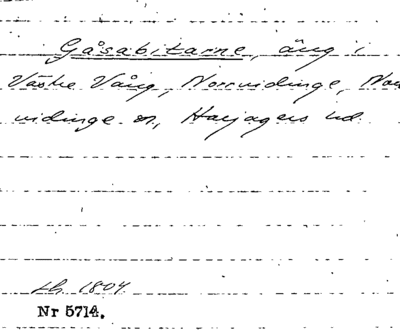 Gåsabitarne, äng i
Västre Vång, Norrvidinge, Norr
vidinge sn, Harjagers hd.
Lh. 1804
Nr 5714.